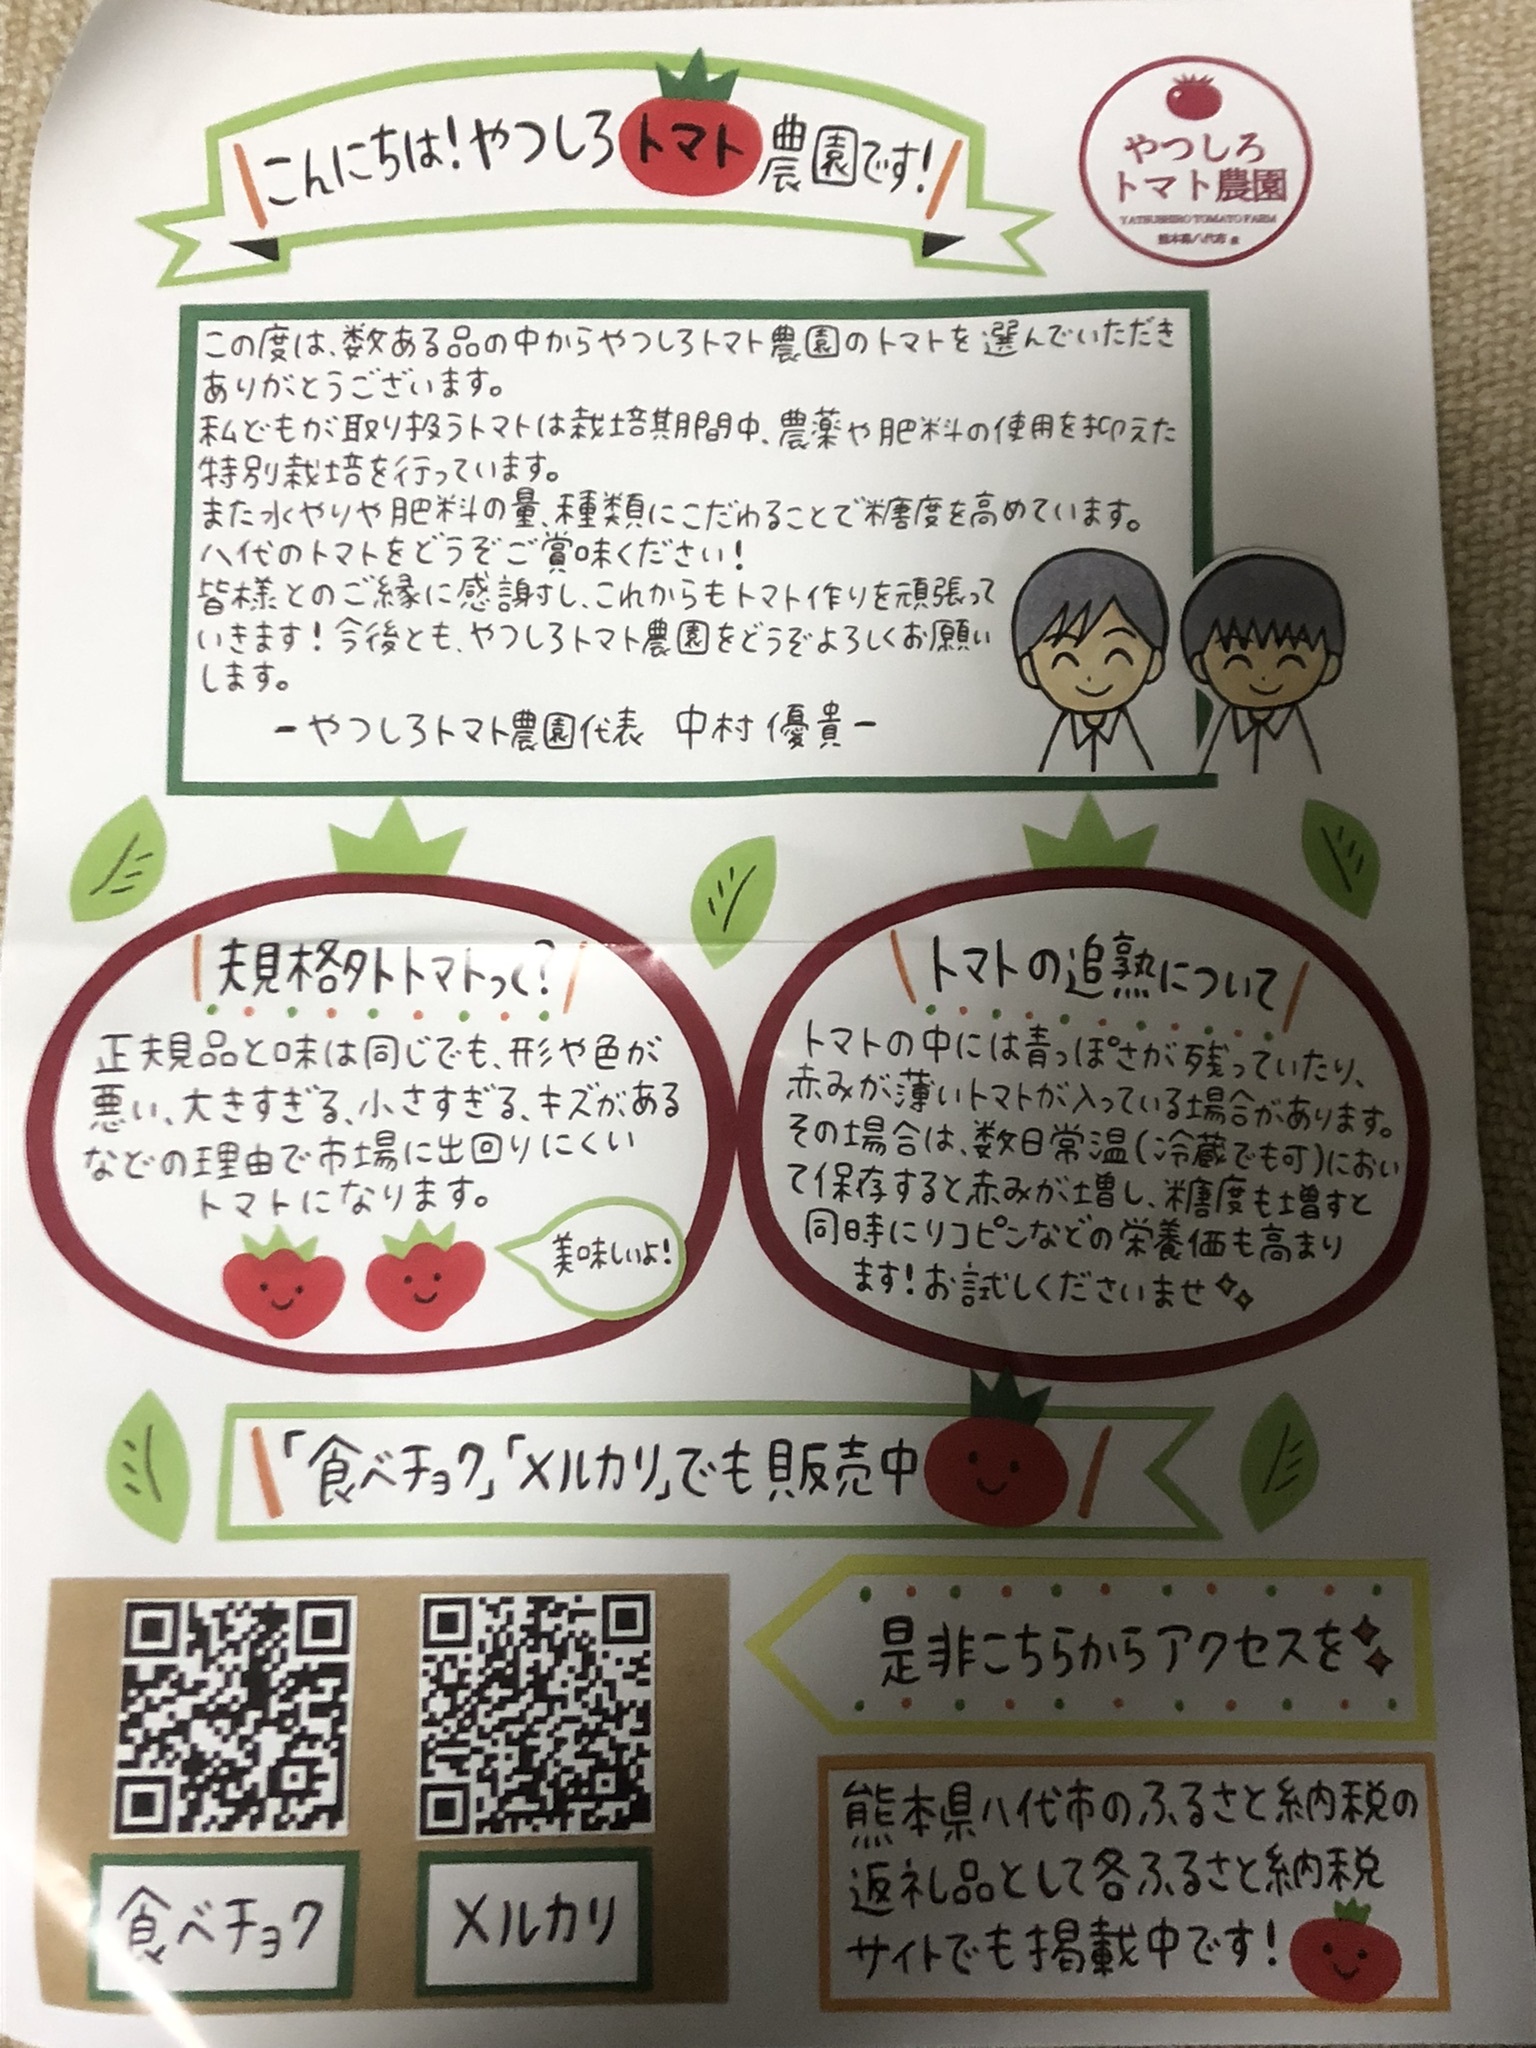 こんにちは!やつしろトマト農園です!
やつしろ
トマト農園
YATSUSHIRO TOMATO FARM
熊本県八代市
この度は、数ある品の中からやつしろトマト農園のトマトを選んでいただき
ありがとうございます。
私どもが取り扱うトマトは栽培期間中、農薬や肥料の使用を抑えた
特別栽培を行っています。
また水やりや肥料の量、種類にこだわることで糖度を高めています。
八代のトマトをどうぞご賞味ください!
皆様とのご縁に感謝し、これからもトマト作りを頑張って
いきます!今後とも、やつしろトマト農園をどうぞよろしくお願い
します。
ーやつしろトマト農園代表 中村 優貴ー
規格外トマトって?
正規品と味は同じでも、形や色が
悪い、大きすぎる、小さすぎる、キズがある
などの理由で市場に出回りにくい
トマトになります。
美味しいよ!
トマトの追熟について
トマトの中には青っぽさが残っていたり、
赤みが薄いトマトが入っている場合があります。
その場合は、数日常温(冷蔵でも可)におい
て保存すると赤みが増し、糖度も増すと
同時にリコピンなどの栄養価も高まり
ます!お試しくださいませ
「食べチョク」「メルカリ」でも販売中
食べチョク
メルカリ
是非こちらからアクセスを
熊本県八代市のふるさと納税の
返礼品として各ふるさと納税
サイトでも掲載中です!